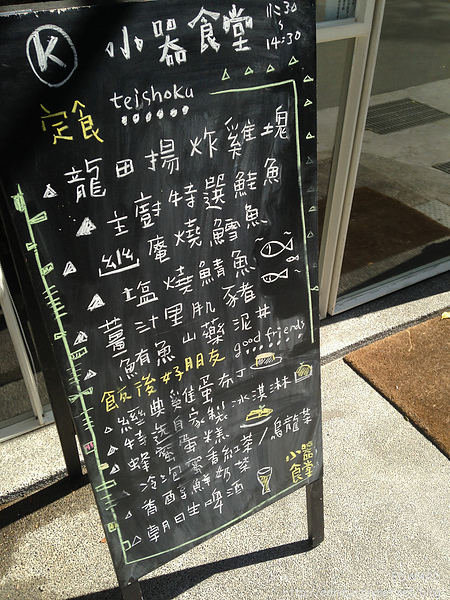 K 小器食堂
11:30
14:30
定食 teishoku
龍田揚炸雞塊
主廚特選鮭魚
幽庵燒鱈魚
塩燒鯖魚
薑汁里肌豬
鮪魚山藥泥丼
飯後好朋友 good friends
經典雞蛋布丁
特選自家製冰淇淋
蜂蜜蛋糕
冷泡蜜香紅茶/烏龍茶
香醇鮮奶茶
朝日生啤酒
小器
食堂